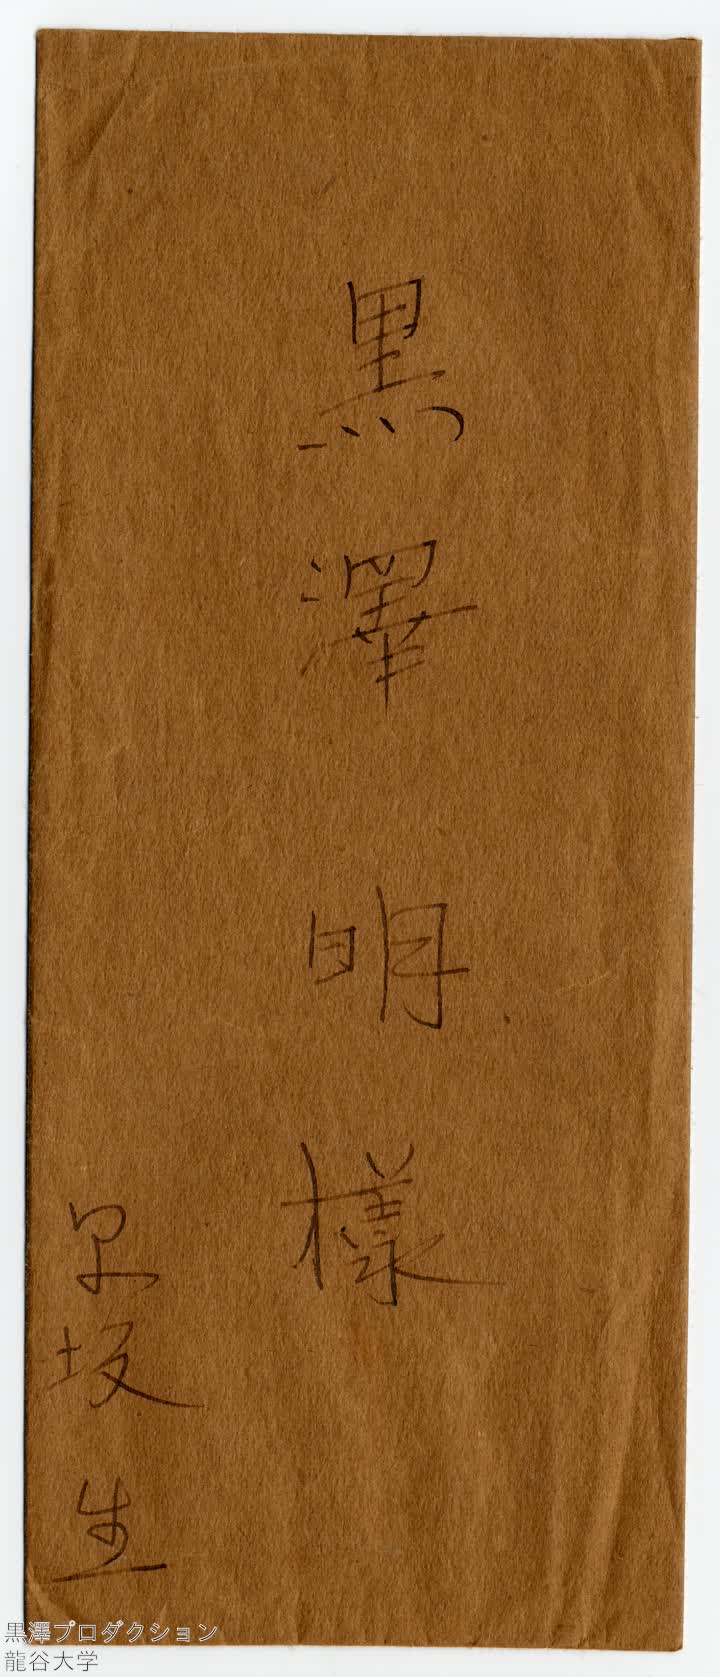 黒澤明様
早坂生
黒澤プロダクション
龍谷大学